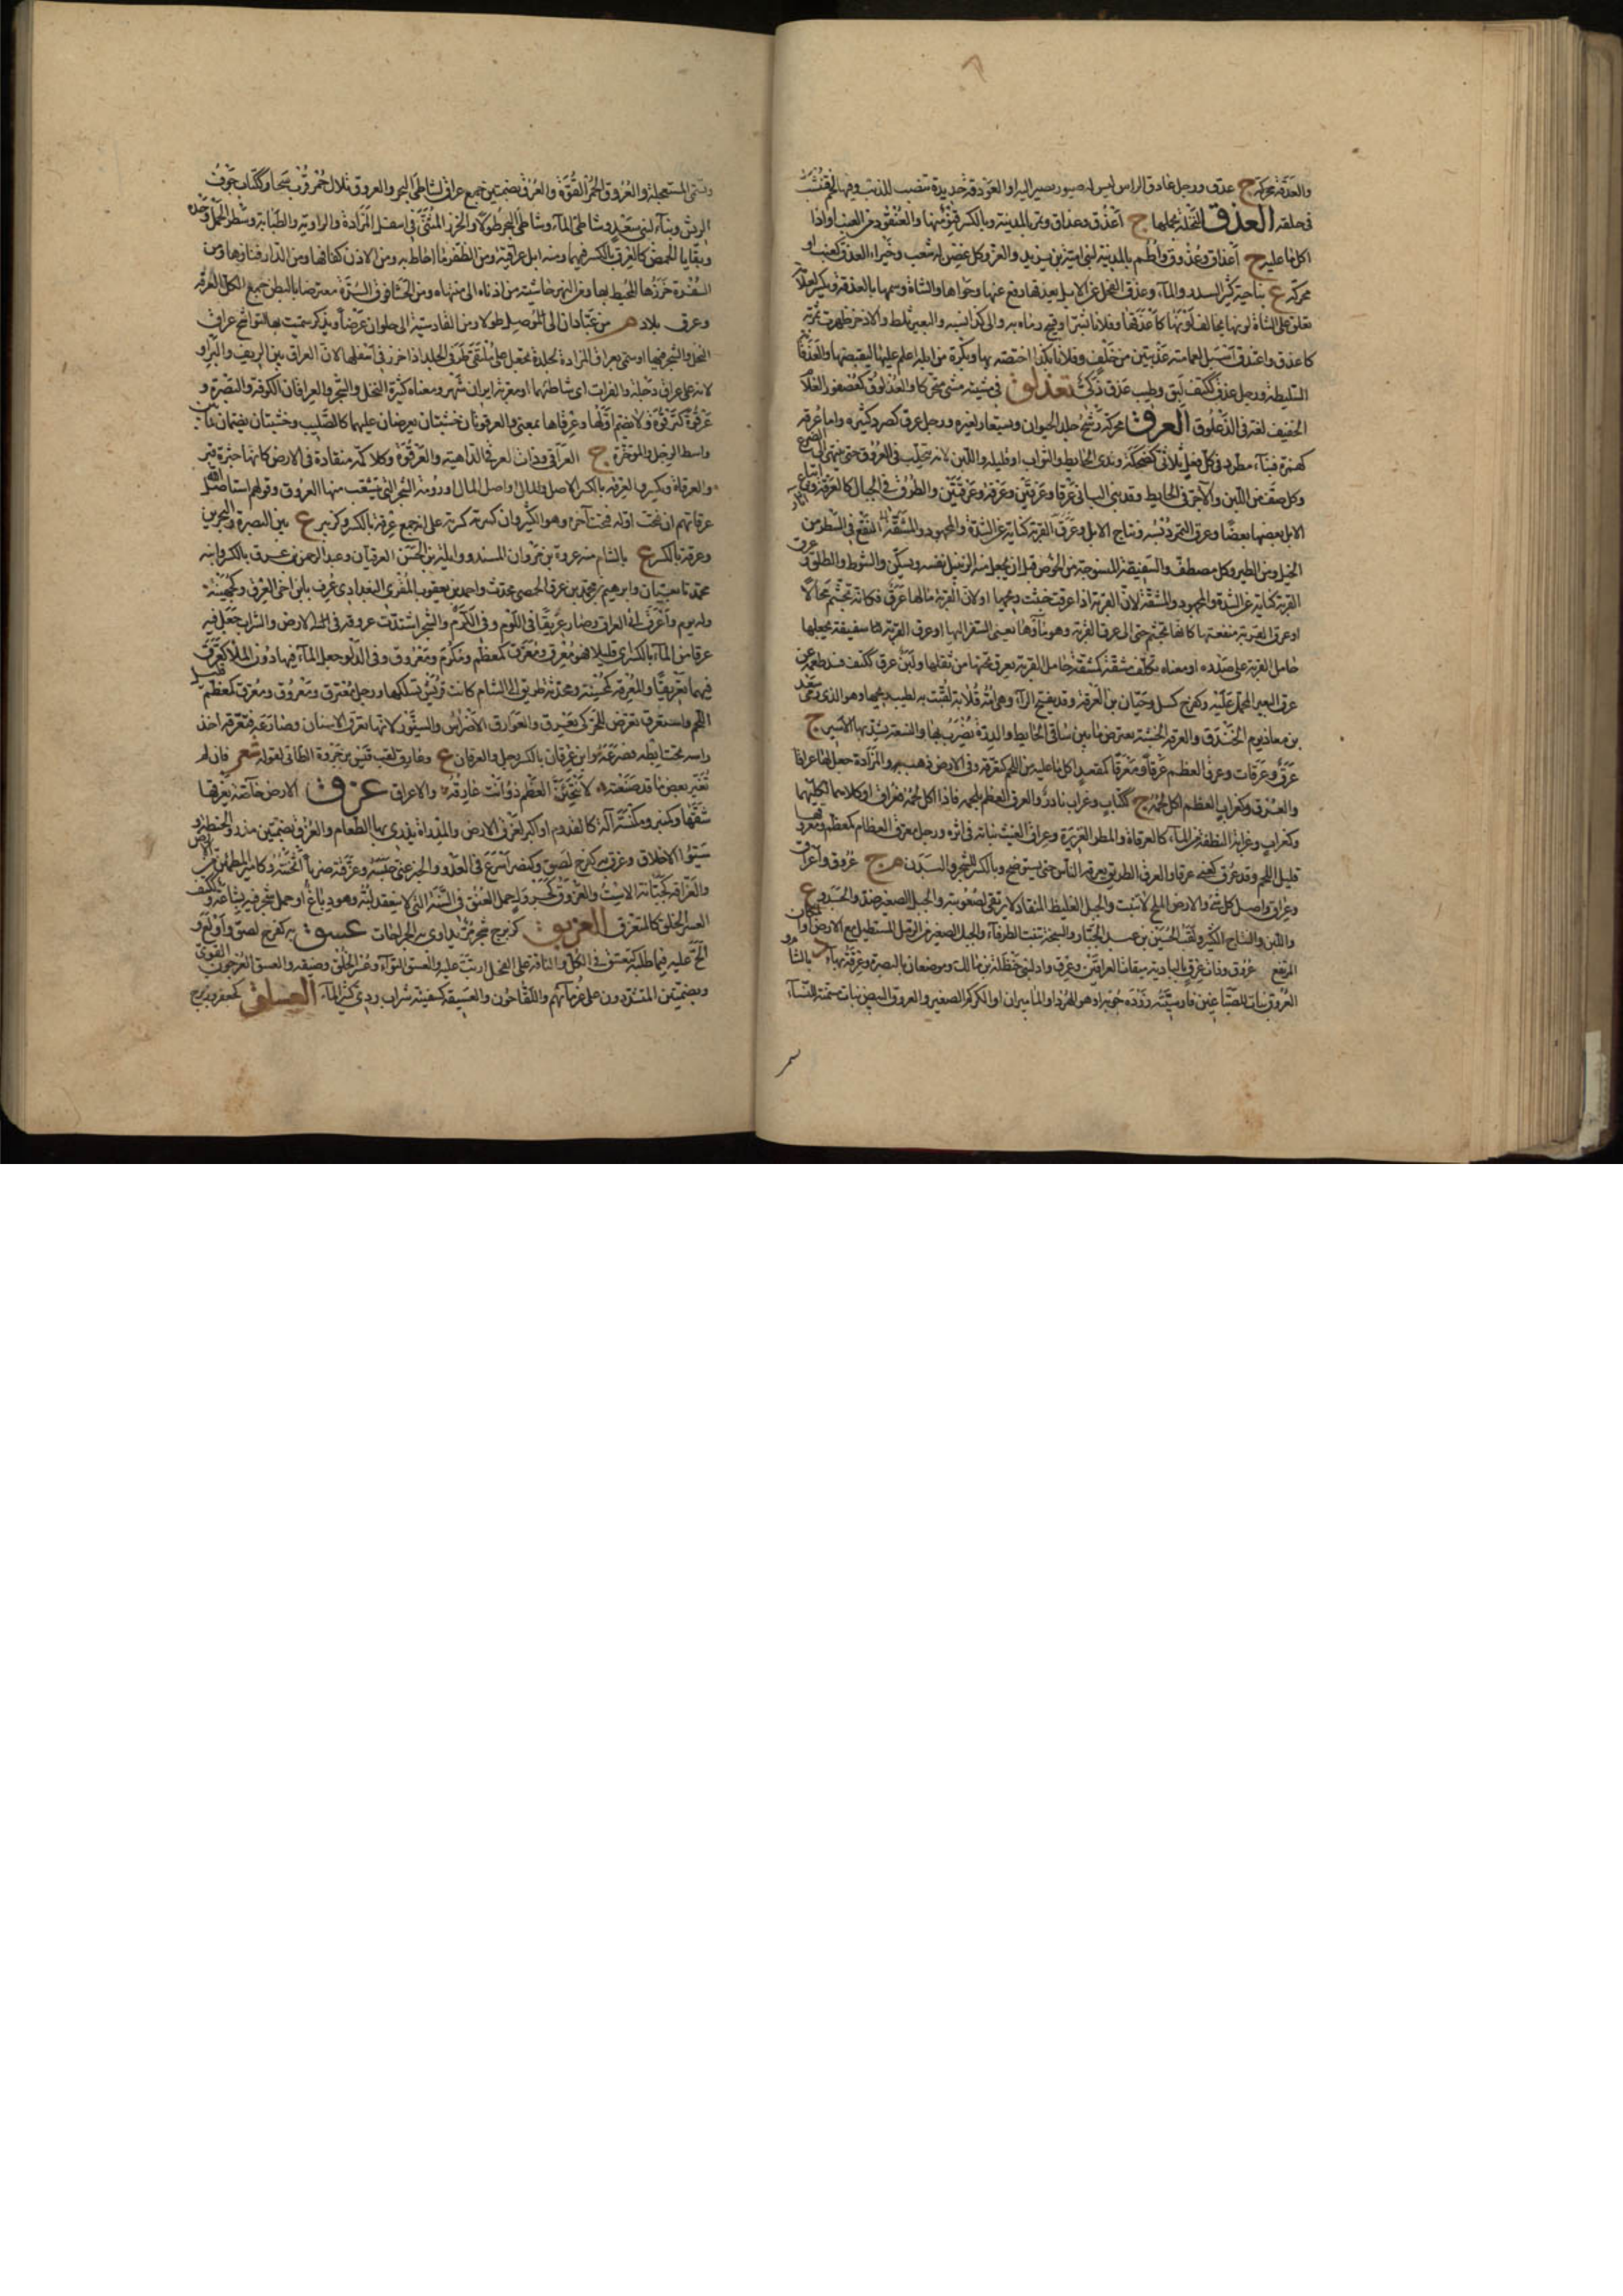 والعذقة محركة ج عدق ورجل عادق الراس ليس له صيور يصير اليه او العودقة حديدة تنصب للذئب وفيها لحم فتنشب
في حلقه العذق النخلة بحملها ج أعذق وعذاق وبالمدينة وبالكسر القنو منها والعنقود من العنب او اذا
اكل ما عليه ج أعذاق وعذوق وأطم بالمدينة لبني امية بن زيد والعز وكل غصن له شعب وخبراء العذق كعنب او
محركة ع بناحية كثير السدر والماء وعذق الفحل عن الابل يعذقها دفع عنها وحواها والشاة وسمها بالعذقة ويكسر لعلامة
تعلق على الشاة لونها يخالف لونها كأعذقها وفلانا بشر او قبيح رماه به والى كذا نسبه والبعير ثلط والاذخر ظهرت ثمرته
كاعذق واعتذق اسبل لعمامته عذبتين من خلف وفلانا بكذا اختصه به وبكرة من ابله اعلم عليها ليقبضها والعذقانة
السليطة ورجل عذق ككتف لبق وطيب عذق ذكي تعذلق في مشيته مشى متحركا والعذلوق كعصفور الغلام
الخفيف لغة في الذعلوق العرق محركة رشح جلد الحيوان ويستعار لغيره ورجل عرق كصرد كثيره واما عرقة
كهمزة فبناء مطرد في كل فعل ثلاثي كضحكة وندى الحائط والثواب او قليله واللبن لانه يتحلب في العروق حتى ينتهي الى الضرع
وكل صف من اللبن والآجر في الحائط وقد بنى الباني عرقا وعرقين وعرقة وعرقتين والطرق في الجبال كالعرقة واتباع
الابل بعضها بعضا وعرق التمر دبسه ونتاج الابل وعرق القربة كناية عن الشدة والمجهود والمشقة النفع والسطر من
الخيل ومن الطير وكل مصطف والسفيفة المنسوجة من الخوص قبل ان يجعل منه الزنبيل او الزنبيل نفسه ويسكن والشوط والطلق وعرق
القربة كناية عن الشدة والمجهود والمشقة لان القربة اذا عرقت خبث ريحها او لان القربة مالها عرق فكانه تجشم محالا
او عرق القربة منفعتها كانه تجشم حتى الى عرق القربة وهو ماؤها يعني السفر اليها او عرق القربة سفيفة يجعلها
حامل القربة على صدره او معناه تكلف مشقة كمشقة حامل القربة يعرق تحتها من ثقلها ولبن عرق ككتف فسد طعمه عن
عرق البعير المحمل عليه وكفرح كسل وحبان بن العرقة وقد يفتح الراء وهي امه قلابة لقبت به لطيب ريحها وهو الذي رمى سعد
بن معاذ يوم الخندق والعرقة الخشبة تعترض ما بين ساقي الحائط والدرة يضرب بها والنسعة يشد بها الاسير ج
عرق وعرقات وعرق العظم عرقا ومعرقا كمقعد اكل ما عليه من اللحم كتعرقه وفي الارض ذهب والمزادة جعل لها عراقا
والعرق وكغراب العظم اكل لحمه ج ككتاب وغراب نادر والعرق العظم بلحمه فاذا اكل لحمه فعراق او كلاهما لكليهما
وكغراب وغرابة النطفة من الماء كالعرقاة والمطر الغزيرة وعراق الغيث نباته في اثره ورجل معرق العظام كمعظم ومعروقها
قليل اللحم وقد عرق كعني عرقا والعرق الطريق يعرقه الناس حتى يستوضح وبالكسر للشجر والبدن م ج عروق واعراق
وعراق واصل كل شيء والارض الملح لا تنبت والجبل الغليظ المنقاد لا يرتقى لصعوبته والجبل الصغير ضد والجسد وع
واللبن والنتاج الكثير ولقب الحسين بن عبد الجبار والسبخة تنبت الطرفاء والحبل الصغير من الرمل المستطيل مع الارض او المكان
المرتفع ج عروق وذات عرق بالبادية ميقات العراقيين وعرق واد لبني حنظلة بن مالك وموضعان بالبصرة وعرقة بهاء د بالشام و
العروق نبات للصباغين فارسيته زرده جوبه او هو الهرد او الماميران او الكركم الصغير والعروق البيض نبات مسمنة للنساء
وتسمى المستعجلة والعروق الحمر الفوة والعرق بضمتين جمع عراق لشاطئ البحر والعروق تلال حمر قرب سجا وككتاب جوف
الريش ومياه لبني سعد وشاطئ الماء وشاطئ البحر طولا والخرز المثنى في اسفل المزادة والراوية والطبابة وشطر الجمل وحده
وبقايا الحمض كالعرق بالكسر فيهما ومنه ابل عراقية ومن الظفر ما احاط به ومن الاذن كفافها ومن الدار فناؤها ومن
السفرة خرزها المحيط بها ومن النهر حاشيته من ادناه الى منتهاه ومن الحشا فوق السرة معترضا بالبطن جمع الكل اعرقة
وعرق وبلاد م من عبادان الى الموصل طولا ومن القادسية الى حلوان عرضا ويذكر سميت بها لتواشج عراق
النخل والشجر فيها او سمي بعراق المزادة لجلدة تجعل على ملتقى طرفي الجلد اذا خرز في اسفلها لان العراق بين الريف والبر او
لانه على عراق دجلة والفرات اي شاطئهما او معربة ايران شهر ومعناه كثيرة النخل والشجر والعراقان الكوفة والبصرة و
عرقوة كترقوة ولا تضم اولها وعرقاها بمعنى والعرقوتان خشبتان يعرضان عليها كالصليب وخشبتان يضمان ما بين
واسط الرحل والمؤخرة ج العراقي وذات العراقي الداهية والعرقوة كل اكمة منقادة في الارض كانها جثوة قبر
والعرقاة وبكسر والعرقة بالكسر الاصل واصل المال او ارومة الشجر التي تتشعب منها العروق وقولهم استأصل الله
عرقاتهم ان فتحت اوله فتحت آخره وهو الكثير وان كسرته كسرته على انه جمع عرقة بالكسر وكزبير ع بين البصرة والبحرين
وعرقة بالكسر ع بالشام منه عروة بن مروان المسند وواثلة بن الحسن العرقيان وعبد الرحمن بن عرق بالكسر وابنه
محمد تابعيان وابراهيم بن محمد بن عرق الحمصي محدث واحمد بن يعقوب المقرئ البغدادي عرف بابن اخي العرق وكجهينة
وله يوم وأعرق اتى العراق وصار عريقا في اللؤم وفي الكرم والشجر اشتدت عروقه في الارض والشراب جعل فيه
عرقا من الماء بالكسر اي قليلا فهو معرق ومعرق كمعظم ومكرم ومعروق وفي الدلو جعل الماء فيها دون الملء كعرق
فيهما تعريقا والمعرقة كمحسنة ومحدثة طريق الى الشام كانت قريش تسلكها ورجل معترق ومعروق ومعرق كمعظم قليل
اللحم واستعرق تعرض للحر كي يعرق والعوارق الاضراس والسنون لانها تعرق الانسان وصارعه فتعرقه اخذ
راسه تحت ابطه فصرعه وابن عرقان بالكسر رجل والعرقان ع وعارق لقب قيس بن جروة الطائي لقوله شعر فان لم
تغير بعض ما قد صنعتم * لانتحين العظم ذو انت عارقه * والاعراق عزق الارض خاصة يعزقها
شقها وكمنبر ومكنسة آلة كالقدوم او اكبر لعزق الارض والمذراة يذرى بها الطعام والعزق بضمتين مذرو الحنطة و
سيئو الاخلاق وعزق به كفرح لصق وكنصر اسرع في العدو والخبر عني حبسه وعزقته ضربا اثخنته وكامير المطمئن من الارض
والعزاقة كجبانة الاست والعزوق كجرول حمل الفستق في السنة التي لا ينعقد لبه وهو دباغ او حمل شجر فيه بشاعة وككتف
العسر الخلق كالمتعزق العزيق كزبرج شجر تداوى به الجراحات عسق به كفرح لصق واولع و
الح عليه فيما طلبه كتعسق في الكل والناقة على الفحل اربت عليه والعسق التواء وعسر الخلق وضيقه والعسق العرجون
وبضمتين المتشددون على غرمائهم واللقاحون والعسيقة كسفينة شراب رديء كثير الماء العسلق كجعفر وزبرج